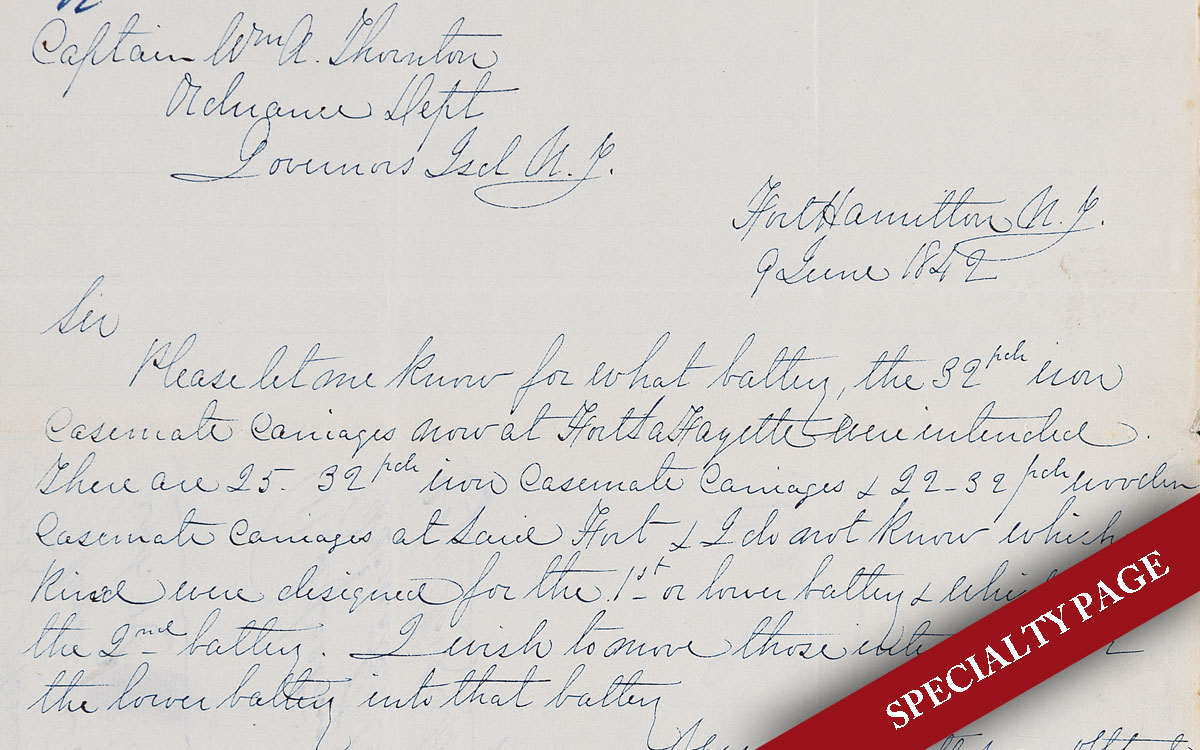 Captain Wm A. Thornton
Ordnance Dept
Governors Isd N.Y.
Fort Hamilton N.Y.
9 June 1842
Sir
Please let me know for what battery, the 32 pdr iron
Casemate Carriages now at Fort LaFayette were intended.
There are 25 - 32 pdr iron Casemate Carriages & 22 - 32 pdr wooden
Casemate Carriages at said Fort & I do not know which
kind were designed for the 1st or lower battery &
the 2nd battery. I wish to move those
the lower battery into that battery
SPECIALTY PAGE